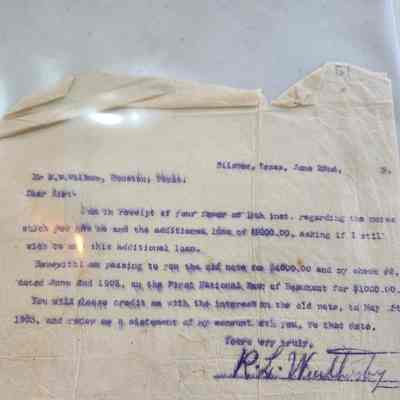 Texas, June 22nd,
Mr Houston, Texas.
Dear Sir:-
I am in receipt of your favor of 18th inst. regarding the notes
which you and the additional loan of $5000.00, asking if I still
wish to this additional loan.
Herewith I am passing to you the old note for $4000.00 and my check
dated June 2nd 1905, on the First National Bank of Beaumont for $1000.00.
You will please credit me with the interest on the old note, to May
1905, and render me a statement of my account with you, to that date.
Yours very truly,
R. L.